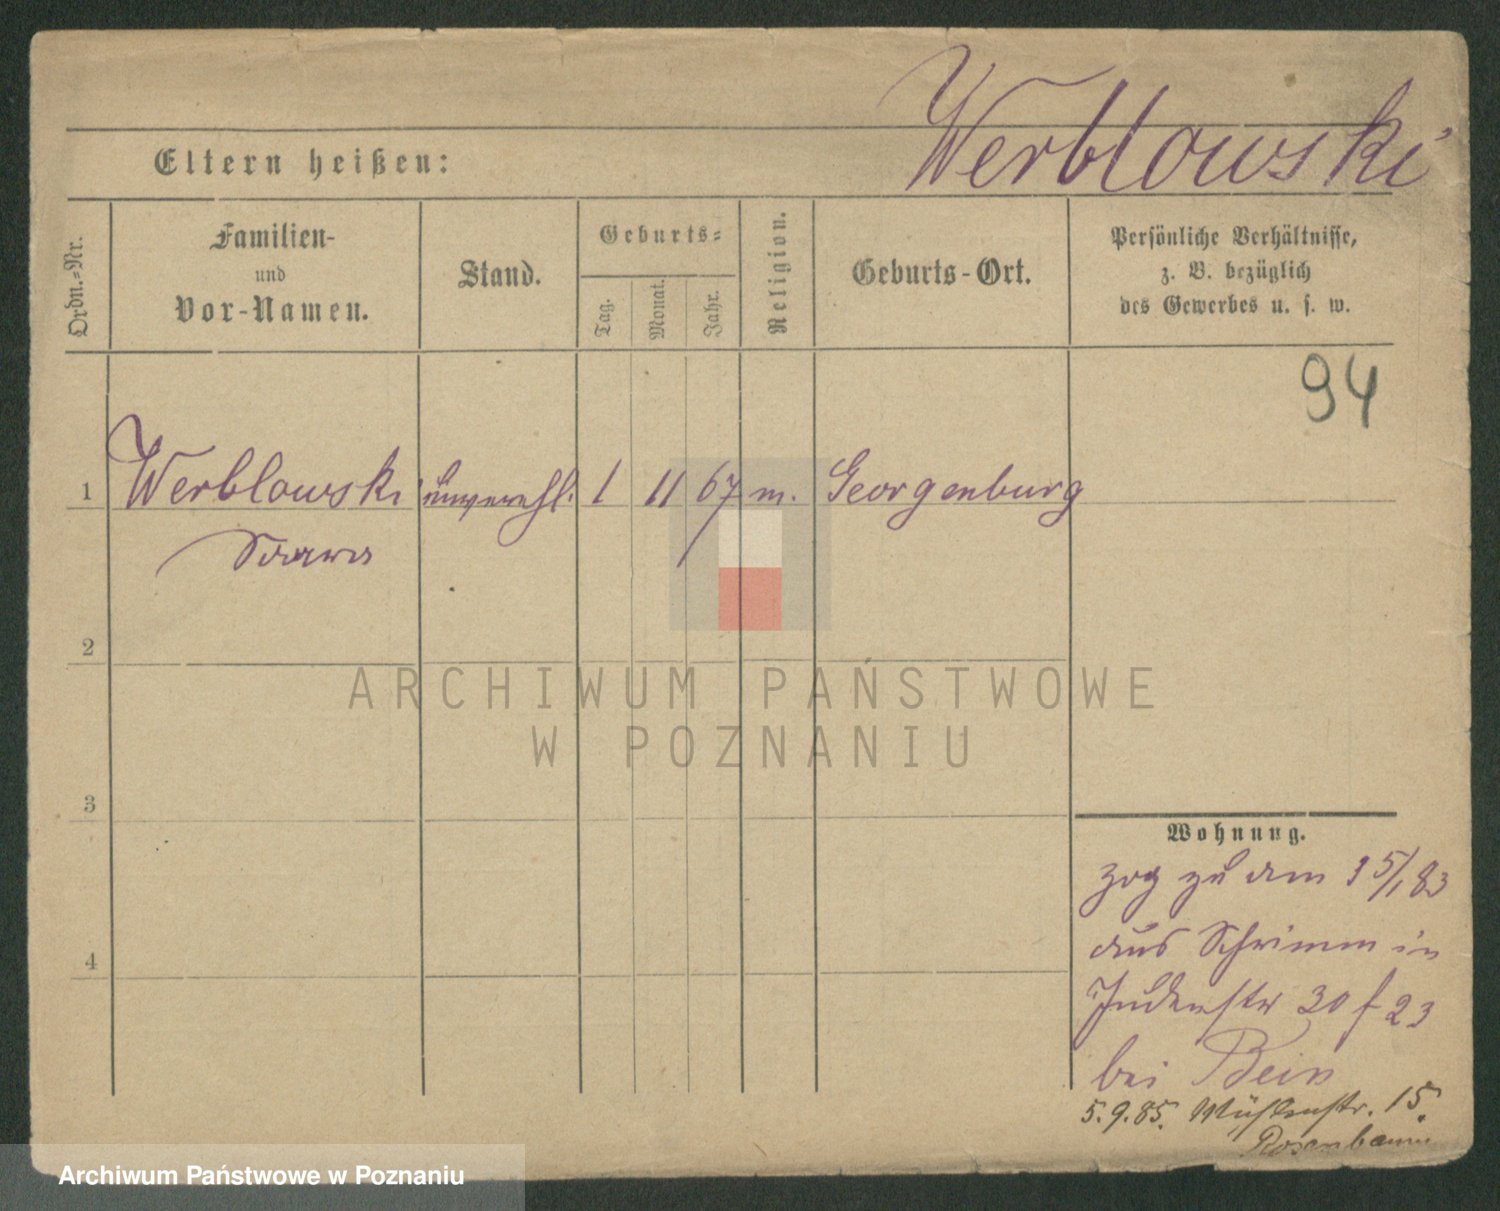 Werblowski
Eltern heißen:
Ordn.-Nr.
Familien-
und
Vor-Namen.
Stand.
Geburts-
Tag.
Monat.
Jahr.
Religion.
Geburts-Ort.
Persönliche Verhältnisse,
z. B. bezüglich
des Gewerbes u. s. w.
94
1 Werblowski unverehl. 1 11 67 m. Georgenburg
2
3
4
Wohnung.
zog zu am 15/1 83
aus Schrimm in
Judenstr 30 f 23
bei Bein
5.9.85. Mühlenstr. 15.
Rosenbaum
ARCHIWUM PAŃSTWOWE
W POZNANIU
Archiwum Państwowe w Poznaniu